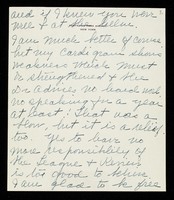 and if I knew you were
me & at the helm.
I am much better of course
but my Cardigram shows
weakness which must
be strengthened & the
Drs Advise no hard work
no speaking for a year
at least; That was a
blow, but it is a relief
too. Yes to have no
more responsibility of
the League & Review
is too good to believe
I am glad to be free